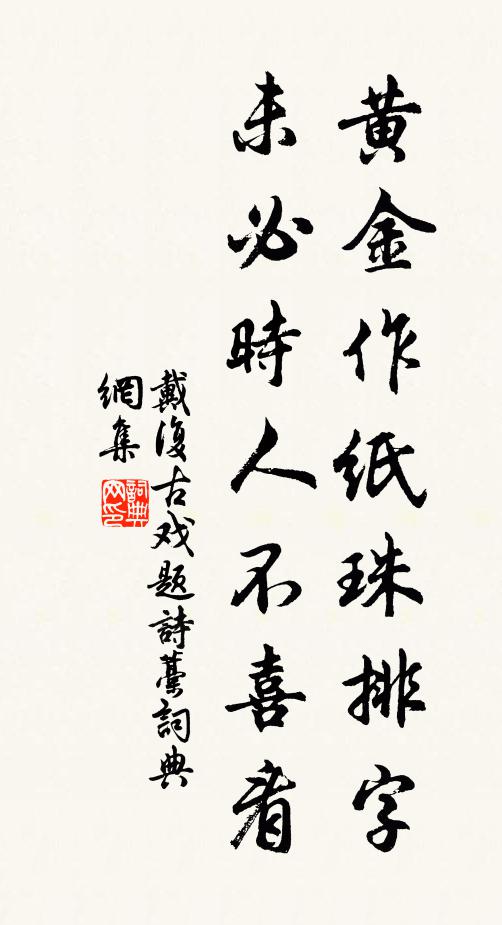 黄金作紙珠排字
未必時人不喜看
戴復古戏題詩藁詞典
網集
詞典网印